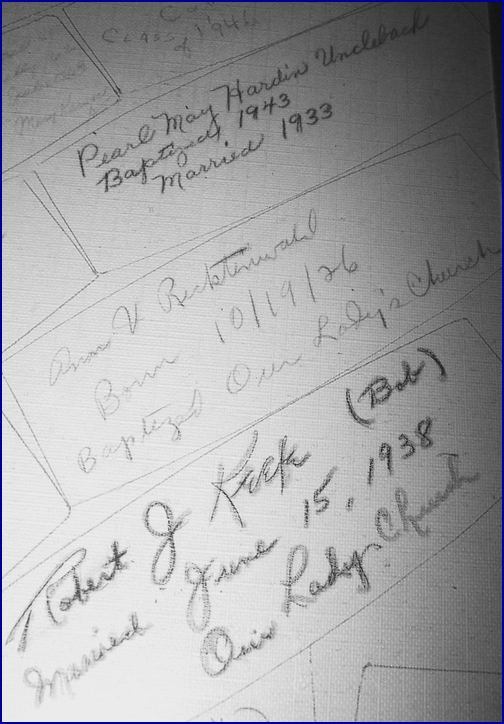 Class
of 1946
Pearl May Hardin Uncleback
Baptized, 1943
Married 1933
Ann V. Recktenwald
Born 10/19/26
Baptized Our Lady's Church
Robert J Keek (Bob)
Married June 15, 1938
Our Lady Church